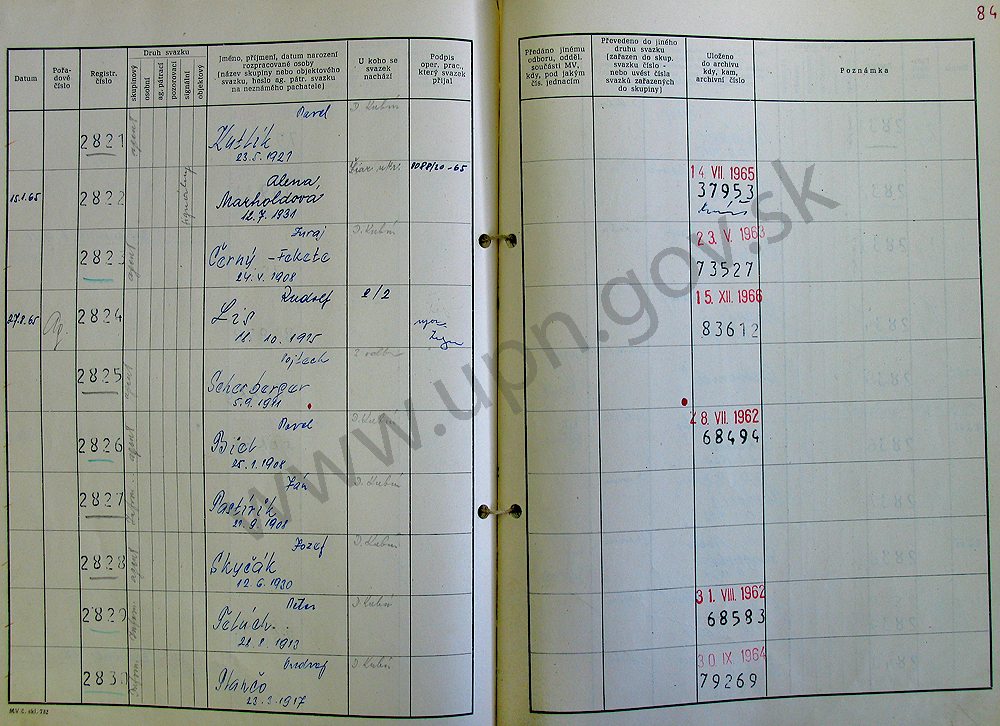 84
Datum
Pořa-
dové
číslo
Registr.
číslo
Druh svazku
skupinový
osobní
ag. pátrací
pozorovací
signální
objektový
Jméno, příjmení, datum narození
rozpracované osoby
(název skupiny nebo objektového
svazku, heslo ag. pátr. svazku
na neznámého pachatele)
U koho se
svazek
nachází
Podpis
oper. prac.,
který svazek
přijal
Předáno jinému
odboru, odděl.
součásti MV,
kdy, pod jakým
čís. jednacím
Převedeno do jiného
druhu svazku
(zařazen do skup.
svazku číslo -
nebo uvést čísla
svazků zařazených
do skupiny)
Uloženo
do archivu
kdy, kam,
archivní číslo
Poznámka
2821 agent Pavel D. Kubín
Kutlík
23.5.1921
15.1.65 2822 signálny Alena, 1088/20-65 14. VII. 1965
Marholdova 37953
12.7.1931
2823 agent Juraj D. Kubín 23. V. 1963
Černý - Fekete 73527
24.V.1908
27.8.65 Ag. 2824 Rudolf 2/2 15. XII. 1966
Lis 83612
18.10.1925
2825 agent Vojtech
Scherberger
5.9.1911
2826 agent Pavel D. Kubín 28. VII. 1962
Biel 68494
25.1.1908
2827 inform. Ján D. Kubín
Pastirik
21.9.1908
2828 agent Jozef D. Kubín
Skyčák
12.6.1930
2829 inform. Peter D. Kubín 31. VIII. 1962
68583
21.8.1913
2830 inform. Ondrej D. Kubín 30. IX 1964
Plančo 79269
23.3.1917
www.upn.gov.sk